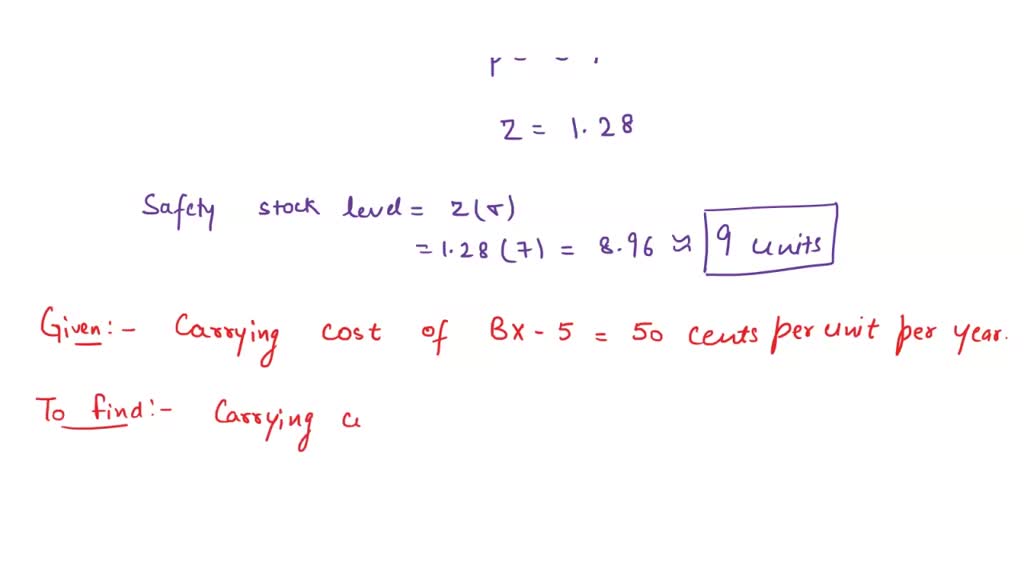 Z = 1.28
Safety stock level = Z(σ)
= 1.28 (7) = 8.96 ≈ 9 units
Given:- Carrying cost of BX-5 = 50 cents per unit per year.
To find:- Carrying c